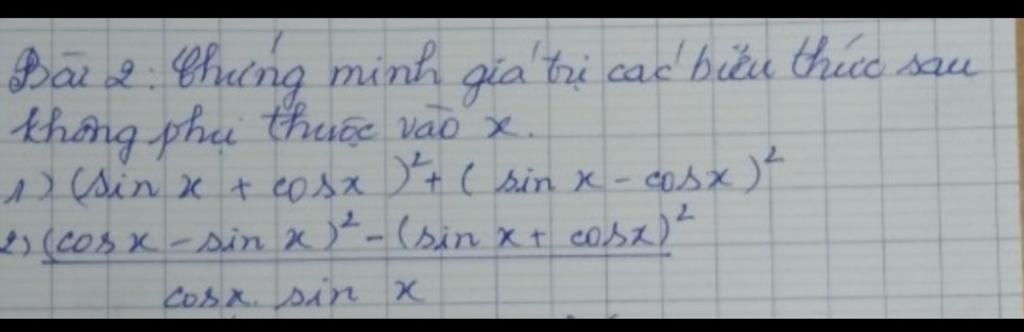 Bài 2: Chứng minh giá trị các biểu thức sau
không phụ thuộc vào x.
1) (sin x + cosx)² + (sin x - cosx)²
2) (cosx - sin x)² - (sin x + cosx)²
cosx. sin x